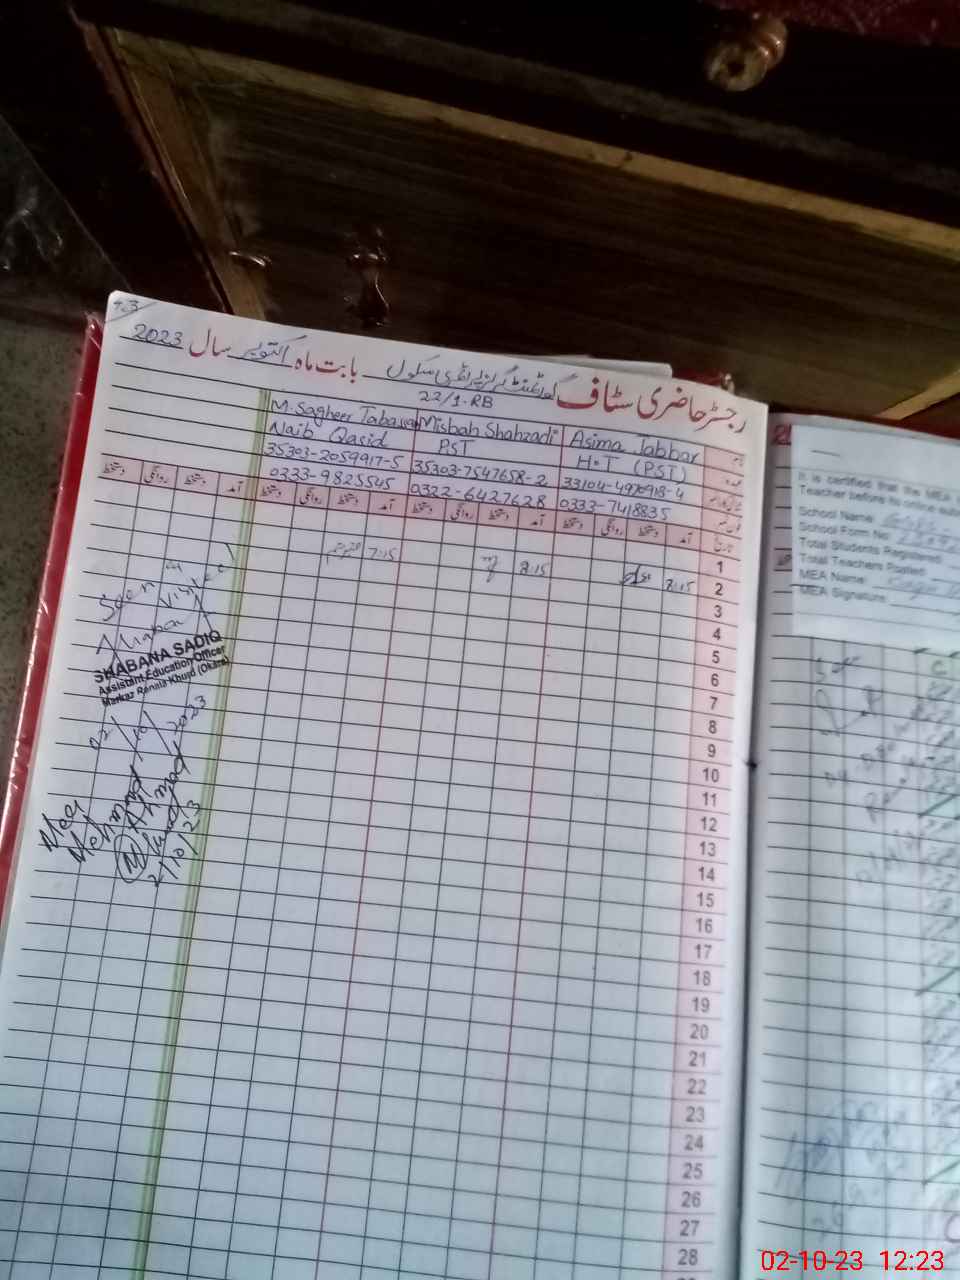 رجسٹر حاضری سٹاف گورنمنٹ گرلز پرائمری سکول بابت ماہ اکتوبر سال 2023
22/1-RB
Asima Jabbar
H.T (PST)
33104-4970918-4
0333-7418835
Misbah Shahzadi
PST
35303-7547658-2
0322-6427628
M. Sagheer Tabassam
Naib Qasid
35303-2059917-5
0333-9825545
تاریخ آمد دستخط روانگی دستخط آمد دستخط روانگی دستخط آمد دستخط روانگی دستخط آمد دستخط روانگی دستخط
1
2 8:15 8:15 7:15
3
4
5
6
7
8
9
10
11
12
13
14
15
16
17
18
19
20
21
22
23
24
25
26
27
28
Seen
Visited
SHABANA SADIQ
Assistant Education Officer
Markaz Renala Khurd (Okara)
02/10/2023
Mea
Mehmood Ahmad
2/10/23
It is certified that the MEA
Teacher before
School Name:
School Form No:
Total Students Registered:
Total Teachers Posted:
MEA Name:
MEA Signature:
02-10-23 12:23